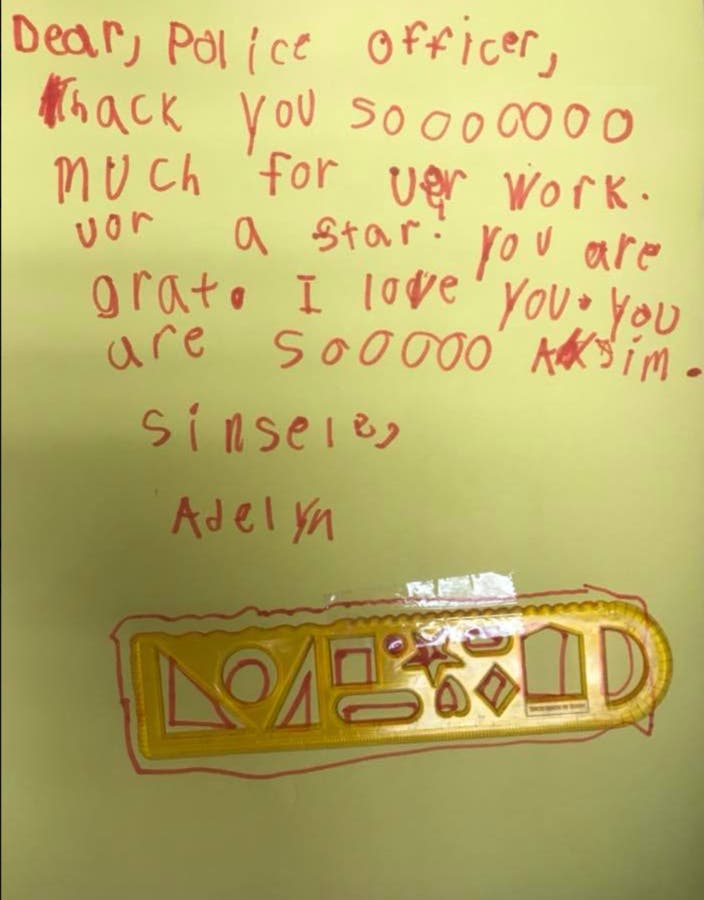 Dear, Police officer,
Thack you sooooooo
much for uer work.
uor a star. you are
grat. I love you. you
are soooooo Aksim.
sinsele,
Adelyn